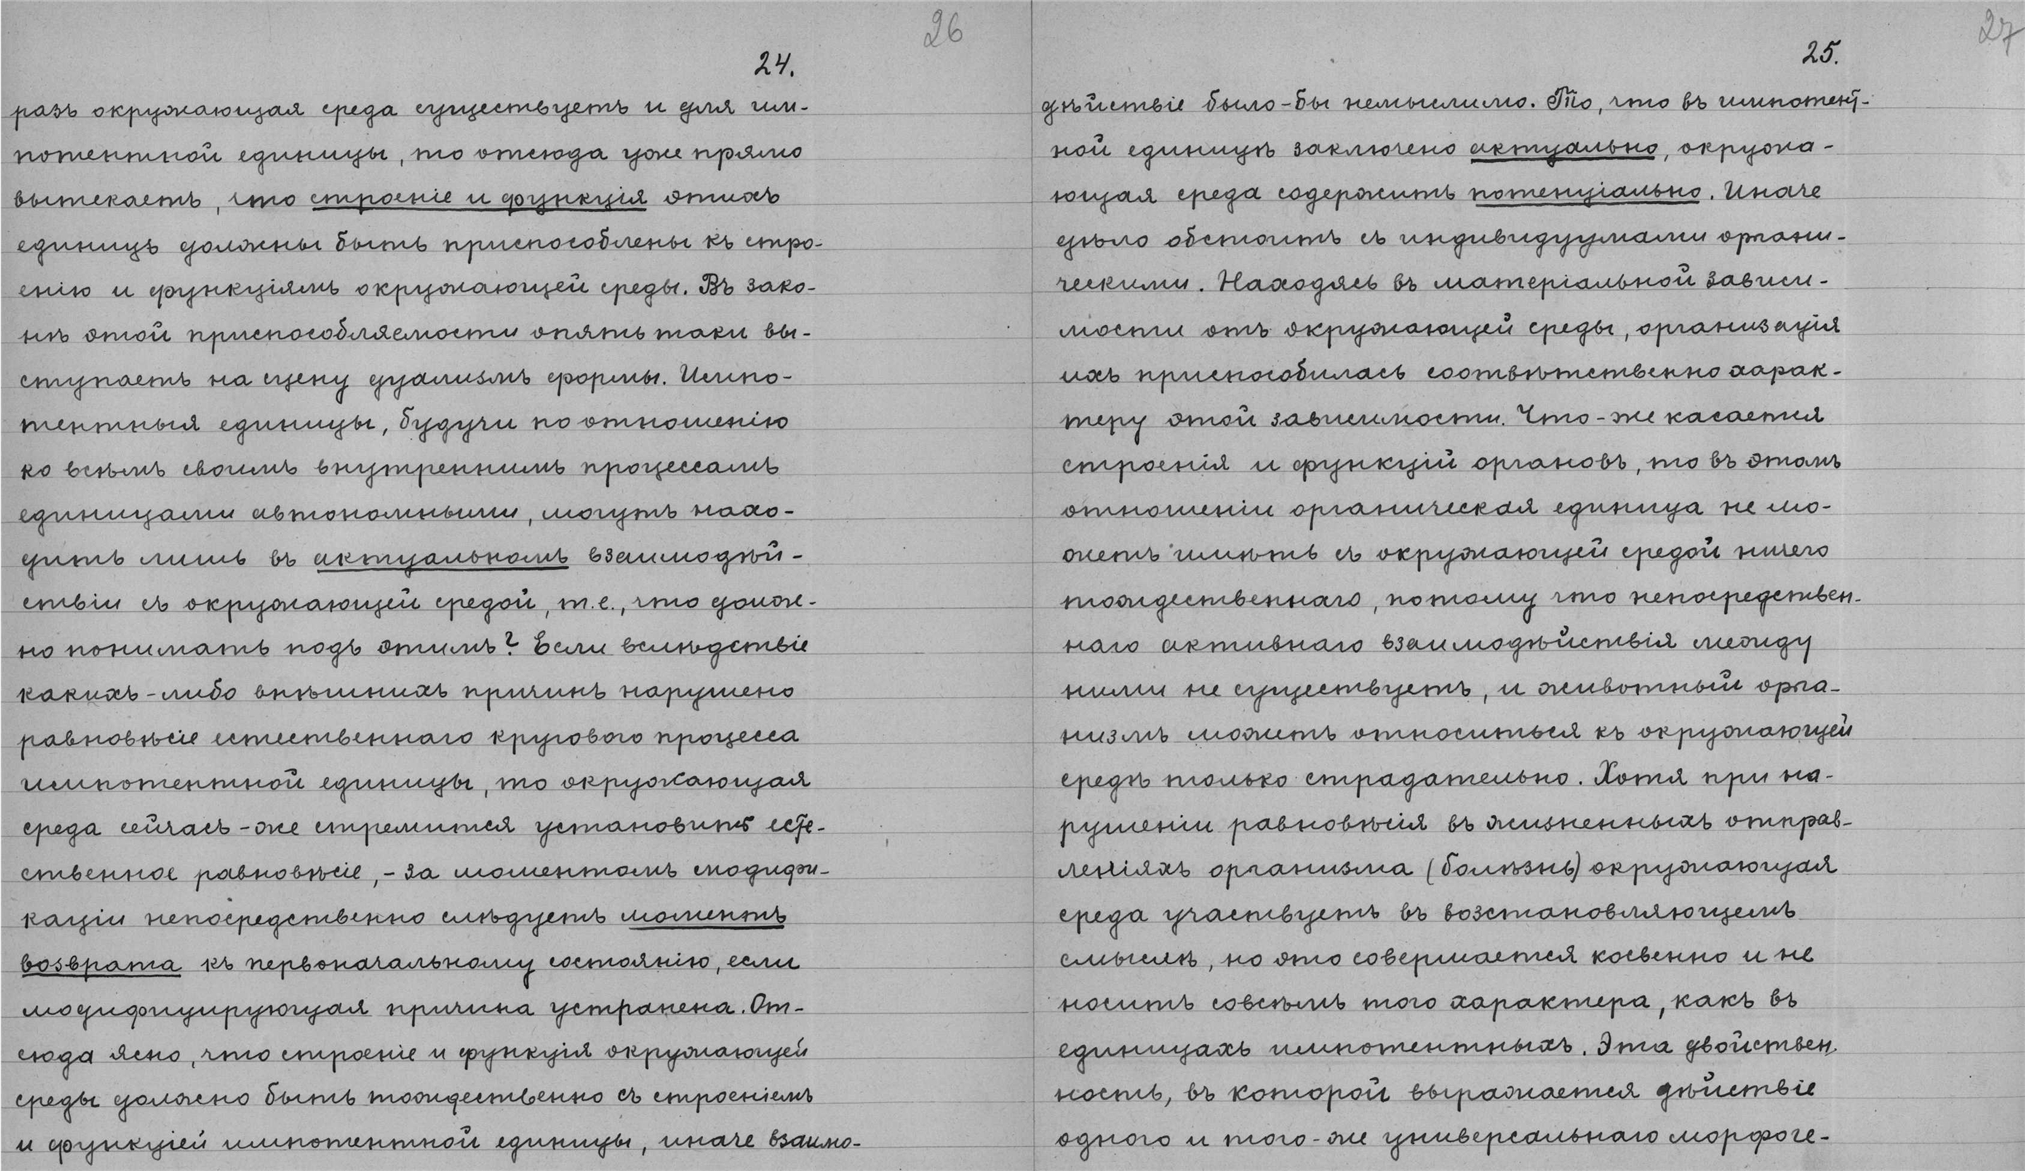 26
24.
разъ окружающая среда существуетъ и для им-
потентной единицы, то отсюда уже прямо
вытекаетъ, что строеніе и функція этихъ
единицъ должны быть приспособлены къ стро-
енію и функціямъ окружающей среды. Въ зако-
нѣ этой приспособляемости опять таки вы-
ступаетъ на сцену дуализмъ формы. Импо-
тентныя единицы, будучи по отношенію
ко всѣмъ своимъ внутреннимъ процессамъ
единицами автономными, могутъ нахо-
дить лишь въ актуальномъ взаимодѣй-
ствіи съ окружающей средой, т.е., что долж-
но понимать подъ этимъ? Если вслѣдствіе
какихъ-либо внѣшнихъ причинъ нарушено
равновѣсіе естественнаго кругового процесса
импотентной единицы, то окружающая
среда сейчасъ-же стремится установить есте-
ственное равновѣсіе, - за моментомъ модифи-
каціи непосредственно слѣдуетъ моментъ
возврата къ первоначальному состоянію, если
модифицирующая причина устранена. От-
сюда ясно, что строеніе и функція окружающей
среды должно быть тождественно съ строеніемъ
и функціей импотентной единицы, иначе взаимо-
27
25.
дѣйствіе было-бы немыслимо. То, что въ импотент-
ной единицѣ заключено актуально, окружа-
ющая среда содержитъ потенціально. Иначе
дѣло обстоитъ съ индивидуумами органи-
ческими. Находясь въ матеріальной зависи-
мости отъ окружающей среды, организація
ихъ приспособилась соотвѣтственно харак-
теру этой зависимости. Что-же касается
строенія и функцій органовъ, то въ этомъ
отношеніи органическая единица не мо-
жетъ имѣть съ окружающей средой ничего
тождественнаго, потому что непосредствен-
наго активнаго взаимодѣйствія между
ними не существуетъ, и животный орга-
низмъ можетъ относиться къ окружающей
средѣ только страдательно. Хотя при на-
рушеніи равновѣсія въ жизненныхъ отправ-
леніяхъ организма (болѣзнь) окружающая
среда участвуетъ въ возстановляющемъ
смыслѣ, но это совершается косвенно и не
носитъ совсѣмъ того характера, какъ въ
единицахъ импотентныхъ. Эта двойствен-
ность, въ которой выражается дѣйствіе
одного и того-же универсальнаго морфоге-